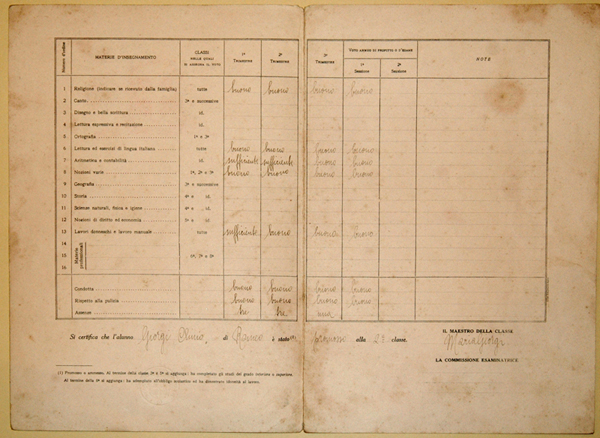 Numero d'ordine MATERIE D'INSEGNAMENTO CLASSI NELLE QUALI SI ASSEGNA IL VOTO 1º Trimestre 2º Trimestre 3º Trimestre VOTO ANNUO DI PROFITTO O D'ESAME 1ª Sessione 2ª Sessione NOTE
1 Religione (indicare se ricevuto dalla famiglia) tutte buono buono buono buono
2 Canto 3ª e successive
3 Disegno e bella scrittura id.
4 Lettura espressiva e recitazione id.
5 Ortografia 1ª e 3ª
6 Lettura ed esercizi di lingua italiana tutte buono buono buono buono
7 Aritmetica e contabilità id. sufficiente sufficiente buono buono
8 Nozioni varie 1ª, 2ª e 3ª buono buono buono buono
9 Geografia 3ª e successive
10 Storia 4ª e id.
11 Scienze naturali, fisica e igiene 4ª e id.
12 Nozioni di diritto ed economia 5ª e id.
13 Lavori donneschi e lavoro manuale tutte sufficiente buono buono buono
14
15 Materie professionali 6ª, 7ª e 8ª
16
Condotta buono buono buono buono
Rispetto alla pulizia buono buono buono buono
Assenze tre tre una
Si certifica che l'alunno Giorgi di è stato promosso alla 2ª classe.
IL MAESTRO DELLA CLASSE
Maria Giorgi
LA COMMISSIONE ESAMINATRICE
(1) Promosso o ammesso. Al termine della classe 3ª e 5ª si aggiunga: ha completato gli studi del grado inferiore o superiore.
Al termine della 8ª si aggiunga: ha adempiuto all'obbligo scolastico ed ha dimostrato idoneità al lavoro.